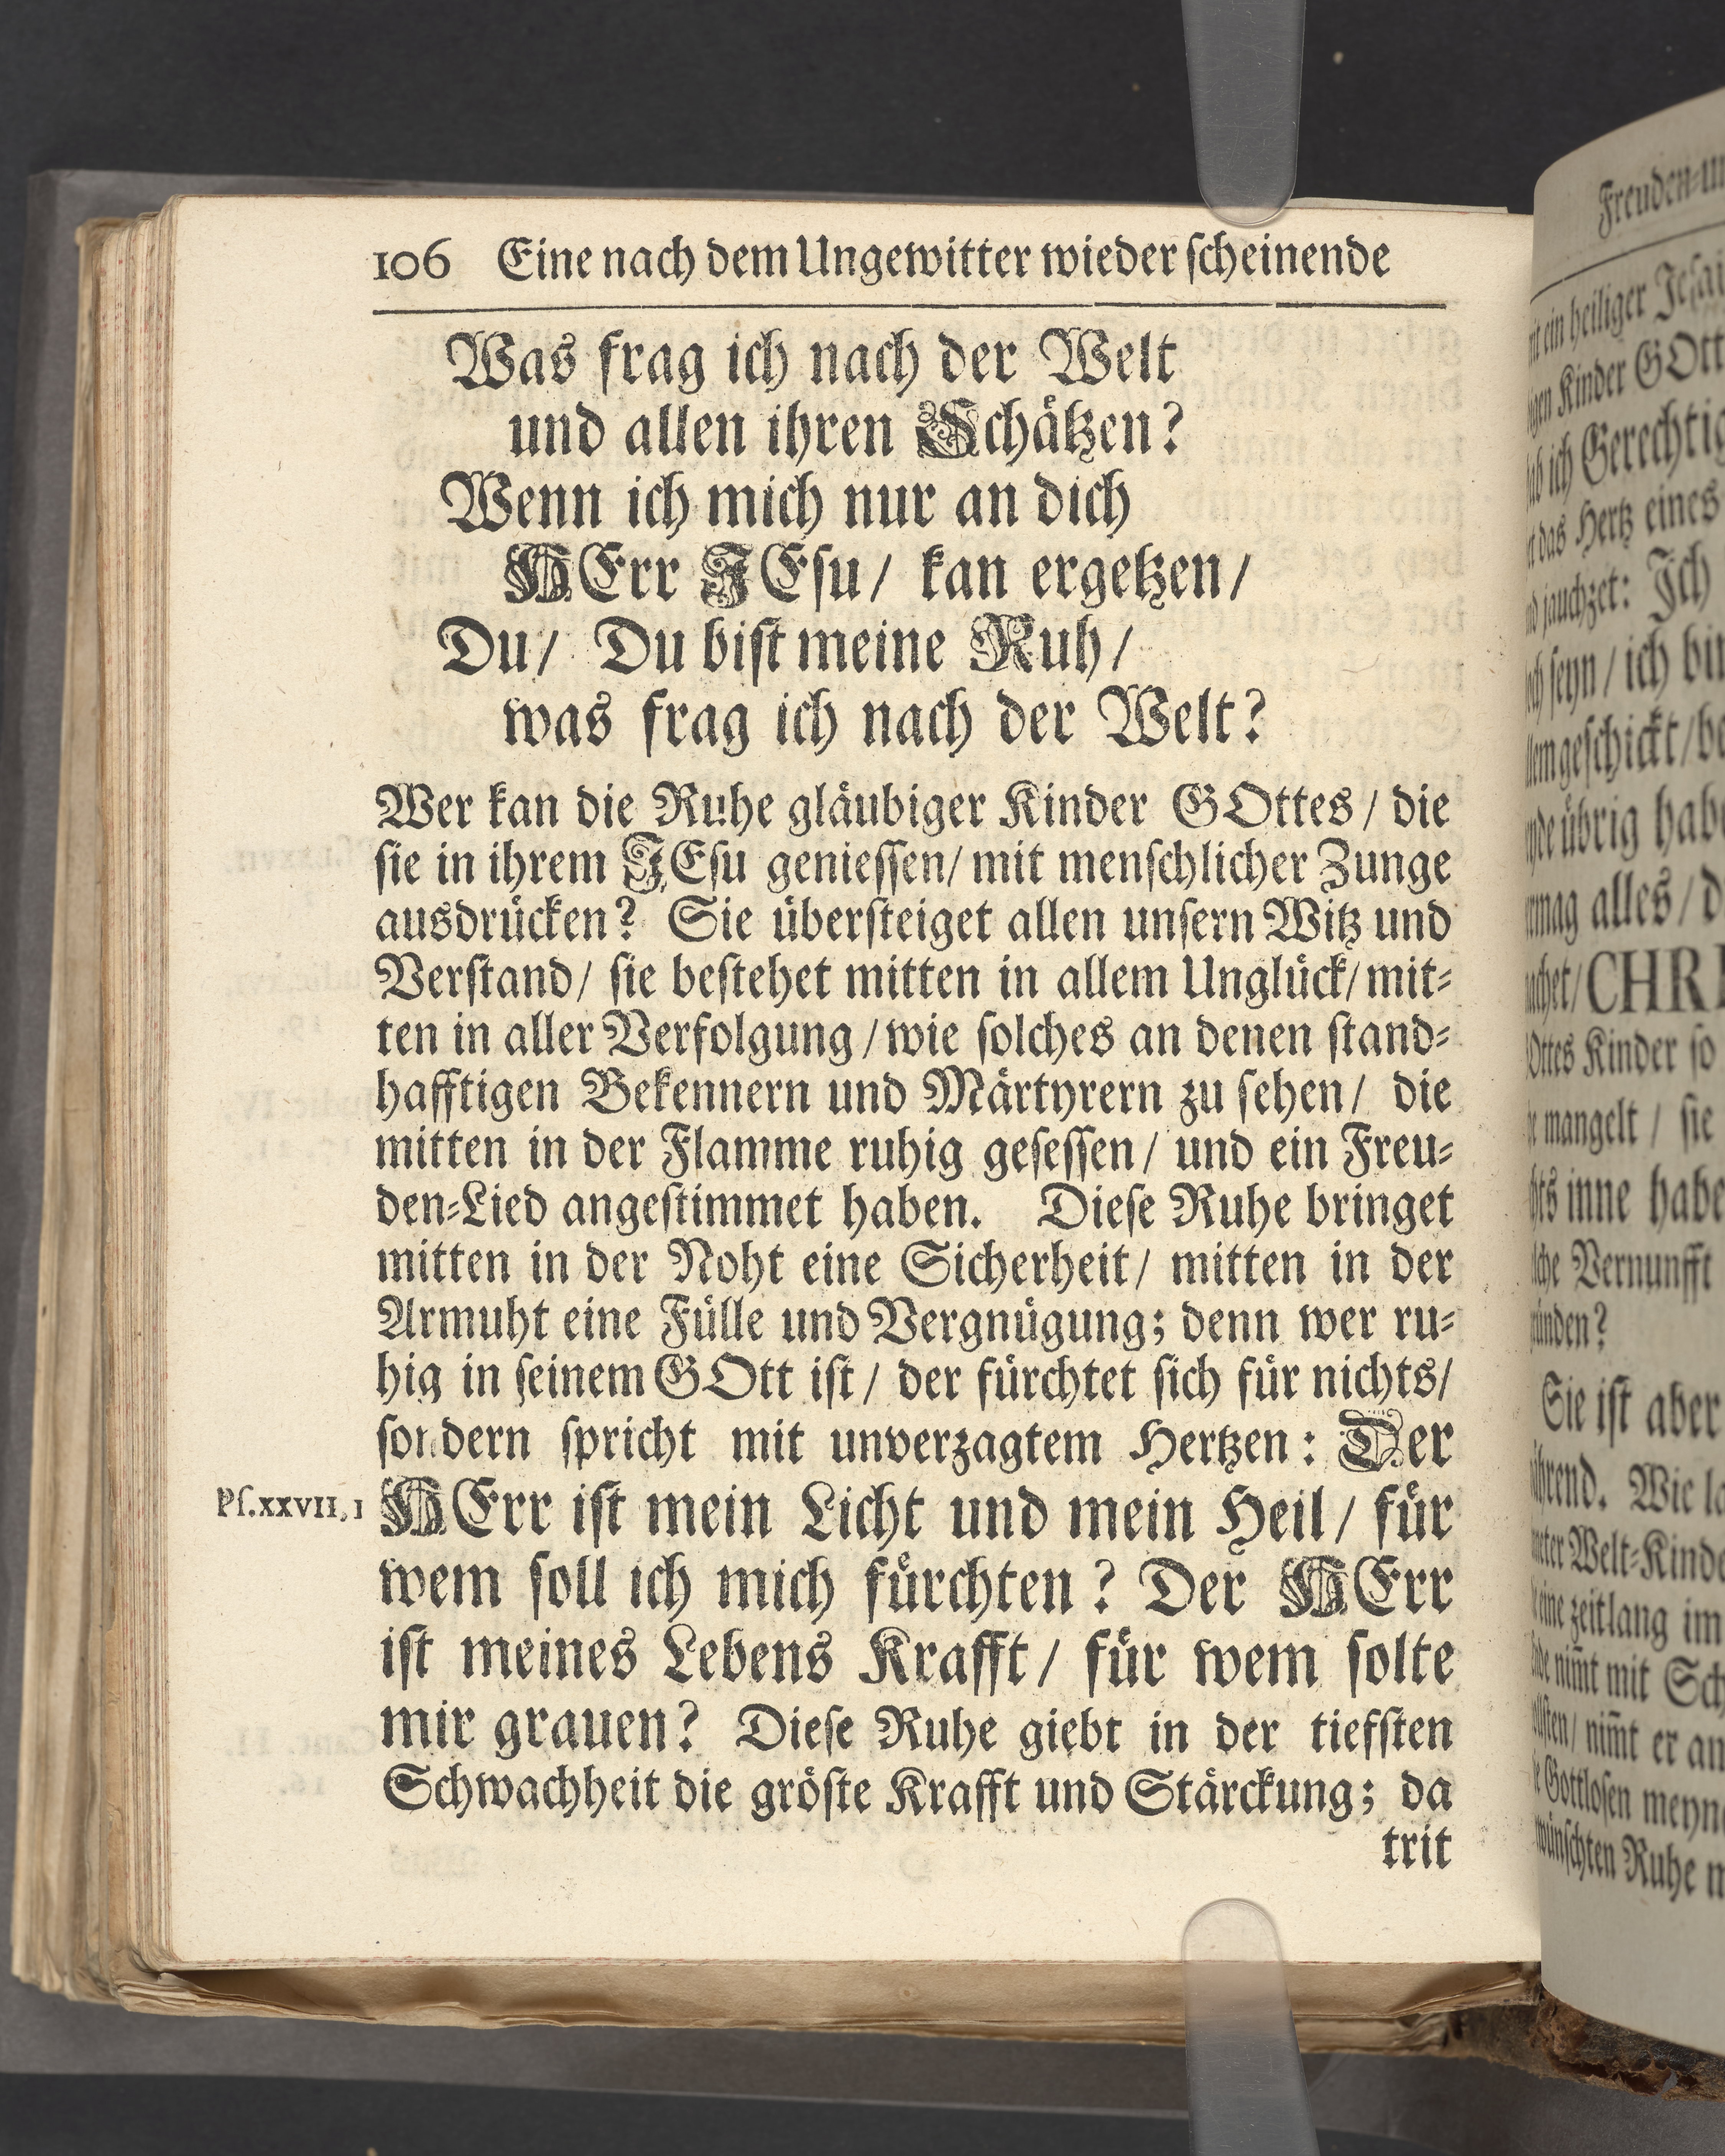 106 Eine nach dem Ungewitter wieder ſcheinende
Was frag ich nach der Welt
und allen ihren Schaͤtzen?
Wenn ich mich nur an dich
HErr JEſu/ kan ergetzen/
Du/ Du biſt meine Ruh/
was frag ich nach der Welt?
Wer kan die Ruhe glaͤubiger Kinder GOttes/ die
ſie in ihrem JEſu genieſſen/ mit menſchlicher Zunge
ausdruͤcken? Sie uͤberſteiget allen unſern Witz und
Verſtand/ ſie beſtehet mitten in allem Ungluͤck/ mit⸗
ten in aller Verfolgung/ wie ſolches an denen ſtand⸗
hafftigen Bekennern und Maͤrtyrern zu ſehen/ die
mitten in der Flamme ruhig geſeſſen/ und ein Freu⸗
den⸗Lied angeſtimmet haben. Dieſe Ruhe bringet
mitten in der Noht eine Sicherheit/ mitten in der
Armuht eine Fuͤlle und Vergnuͤgung; denn wer ru⸗
hig in ſeinem GOtt iſt/ der fuͤrchtet ſich fuͤr nichts/
ſondern ſpricht mit unverzagtem Hertzen: Der
Pſ. XXVII, 1
HErr iſt mein Licht und mein Heil/ fuͤr
wem ſoll ich mich fuͤrchten? Der HErr
iſt meines Lebens Krafft/ fuͤr wem ſolte
mir grauen? Dieſe Ruhe giebt in der tiefſten
Schwachheit die groͤſte Krafft und Staͤrckung; da
trit
Freuden⸗
ein heiliger
Kinder GOtt
ich
das Hertz eines
jauchzet: Ich
ſeyn/ ich
geſchickt/
uͤbrig
alles/
Kinder ſo
mangelt/ ſie
inne
Vernunfft
Sie iſt aber
Wie
Welt⸗
zeitlang im
nim̃t mit
nim̃t er
Gottloſen
Ruhe